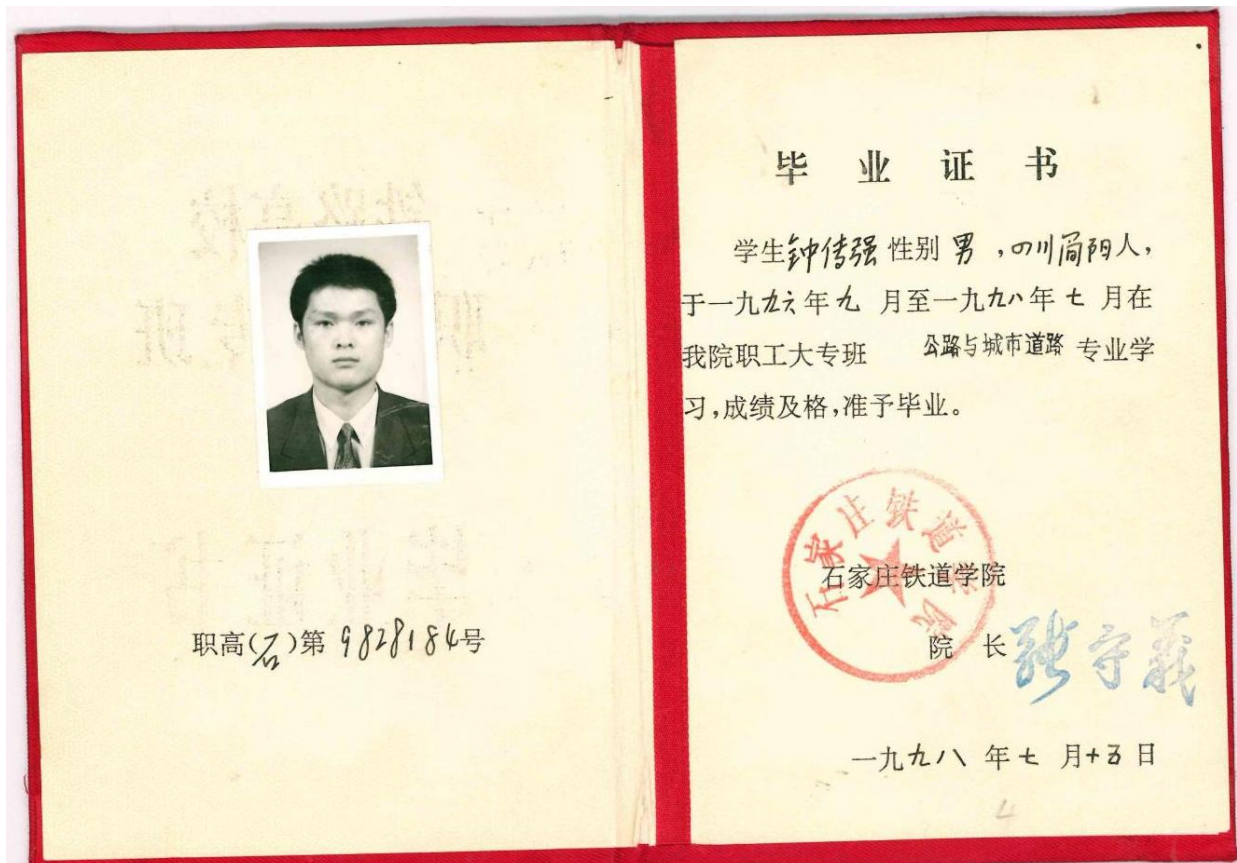 职高(石)第9828184号
毕业证书
学生钟传强性别男,四川简阳人,
于一九九六年九月至一九九八年七月在
我院职工大专班 公路与城市道路 专业学
习,成绩及格,准予毕业。
石家庄铁道学院
石家庄铁道学院
院长 张守义
一九九八年七月十五日
4